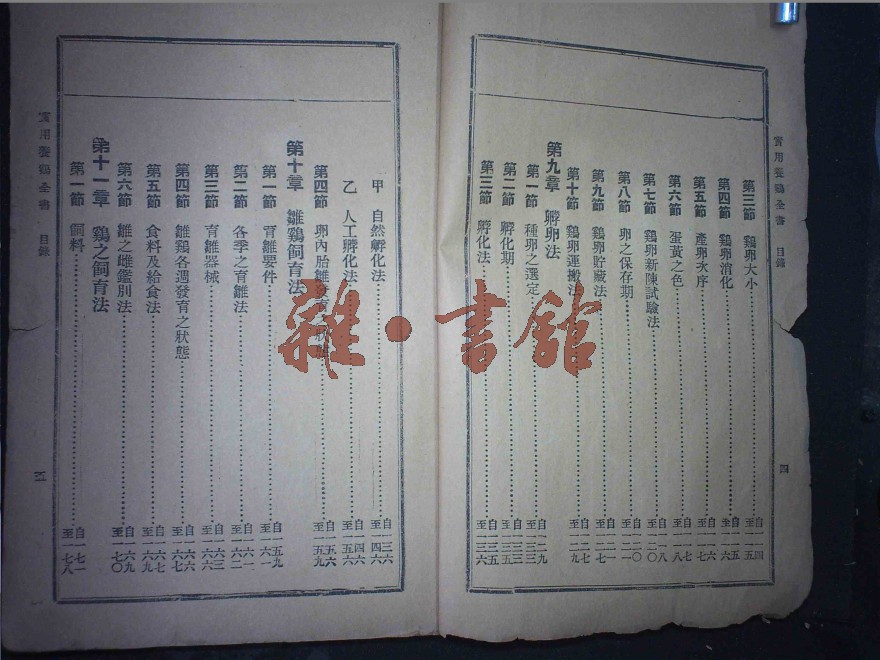 實用養鷄全書 目錄
四
第三節 鷄卵大小 自一一四 至一一五
第四節 鷄卵消化 自一一五 至一一六
第五節 產卵次序 自一一六 至一一七
第六節 蛋黃之色 自一一七 至一一八
第七節 鷄卵新陳試驗法 自一一八 至一二〇
第八節 卵之保存期 自一二〇 至一二一
第九節 鷄卵貯藏法
第十節 鷄卵運搬法
第九章 孵卵法
第一節 種卵之選定
第二節 孵化期
第三節 孵化法 自一三五 至一三六
甲 自然孵化法 自一三六 至一四六
乙 人工孵化法 自一四六 至一五六
第四節 卵內胎雛 自一五六 至一五九
第十章 雛鷄飼育法
第一節 育雛要件 自一五九 至一六一
第二節 各季之育雛法 自一六一 至一六二
第三節 育雛器械 自一六三 至一六六
第四節 雛鷄各週發育之狀態 自一六六 至一六七
第五節 食料及給食法 自一六七 至一六九
第六節 雛之雌雄鑑別法 自一六九 至一七〇
第十一章 鷄之飼育法
第一節 飼料 自一七一 至一七八
實用養鷄全書 目錄
四
雜·書館